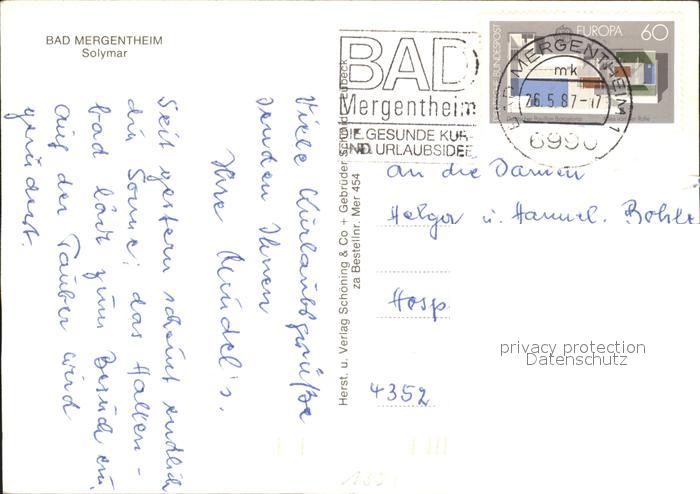 BAD MERGENTHEIM
Solymar
Seit gestern scheint endlich
die Sonne; das Hallen-
bad lädt zum Besuch ein,
auf der Tauber wird
gerudert.
Viele Kurlaubsgrüße
senden Ihnen
Ihre Mündel's.
Herst. u. Verlag Schöning & Co + Gebrüder Schmidt, Lübeck
za Bestellnr. Mer 454
BAD
Mergentheim
DIE GESUNDE KUR-
UND URLAUBSIDEE
BUNDESPOST
EUROPA 60
MERGENTHEIM 1
mk
26.5.87-17
6990
An die Damen
Helga u. Hannel.
Hosp.
4352
privacy protection
Datenschutz